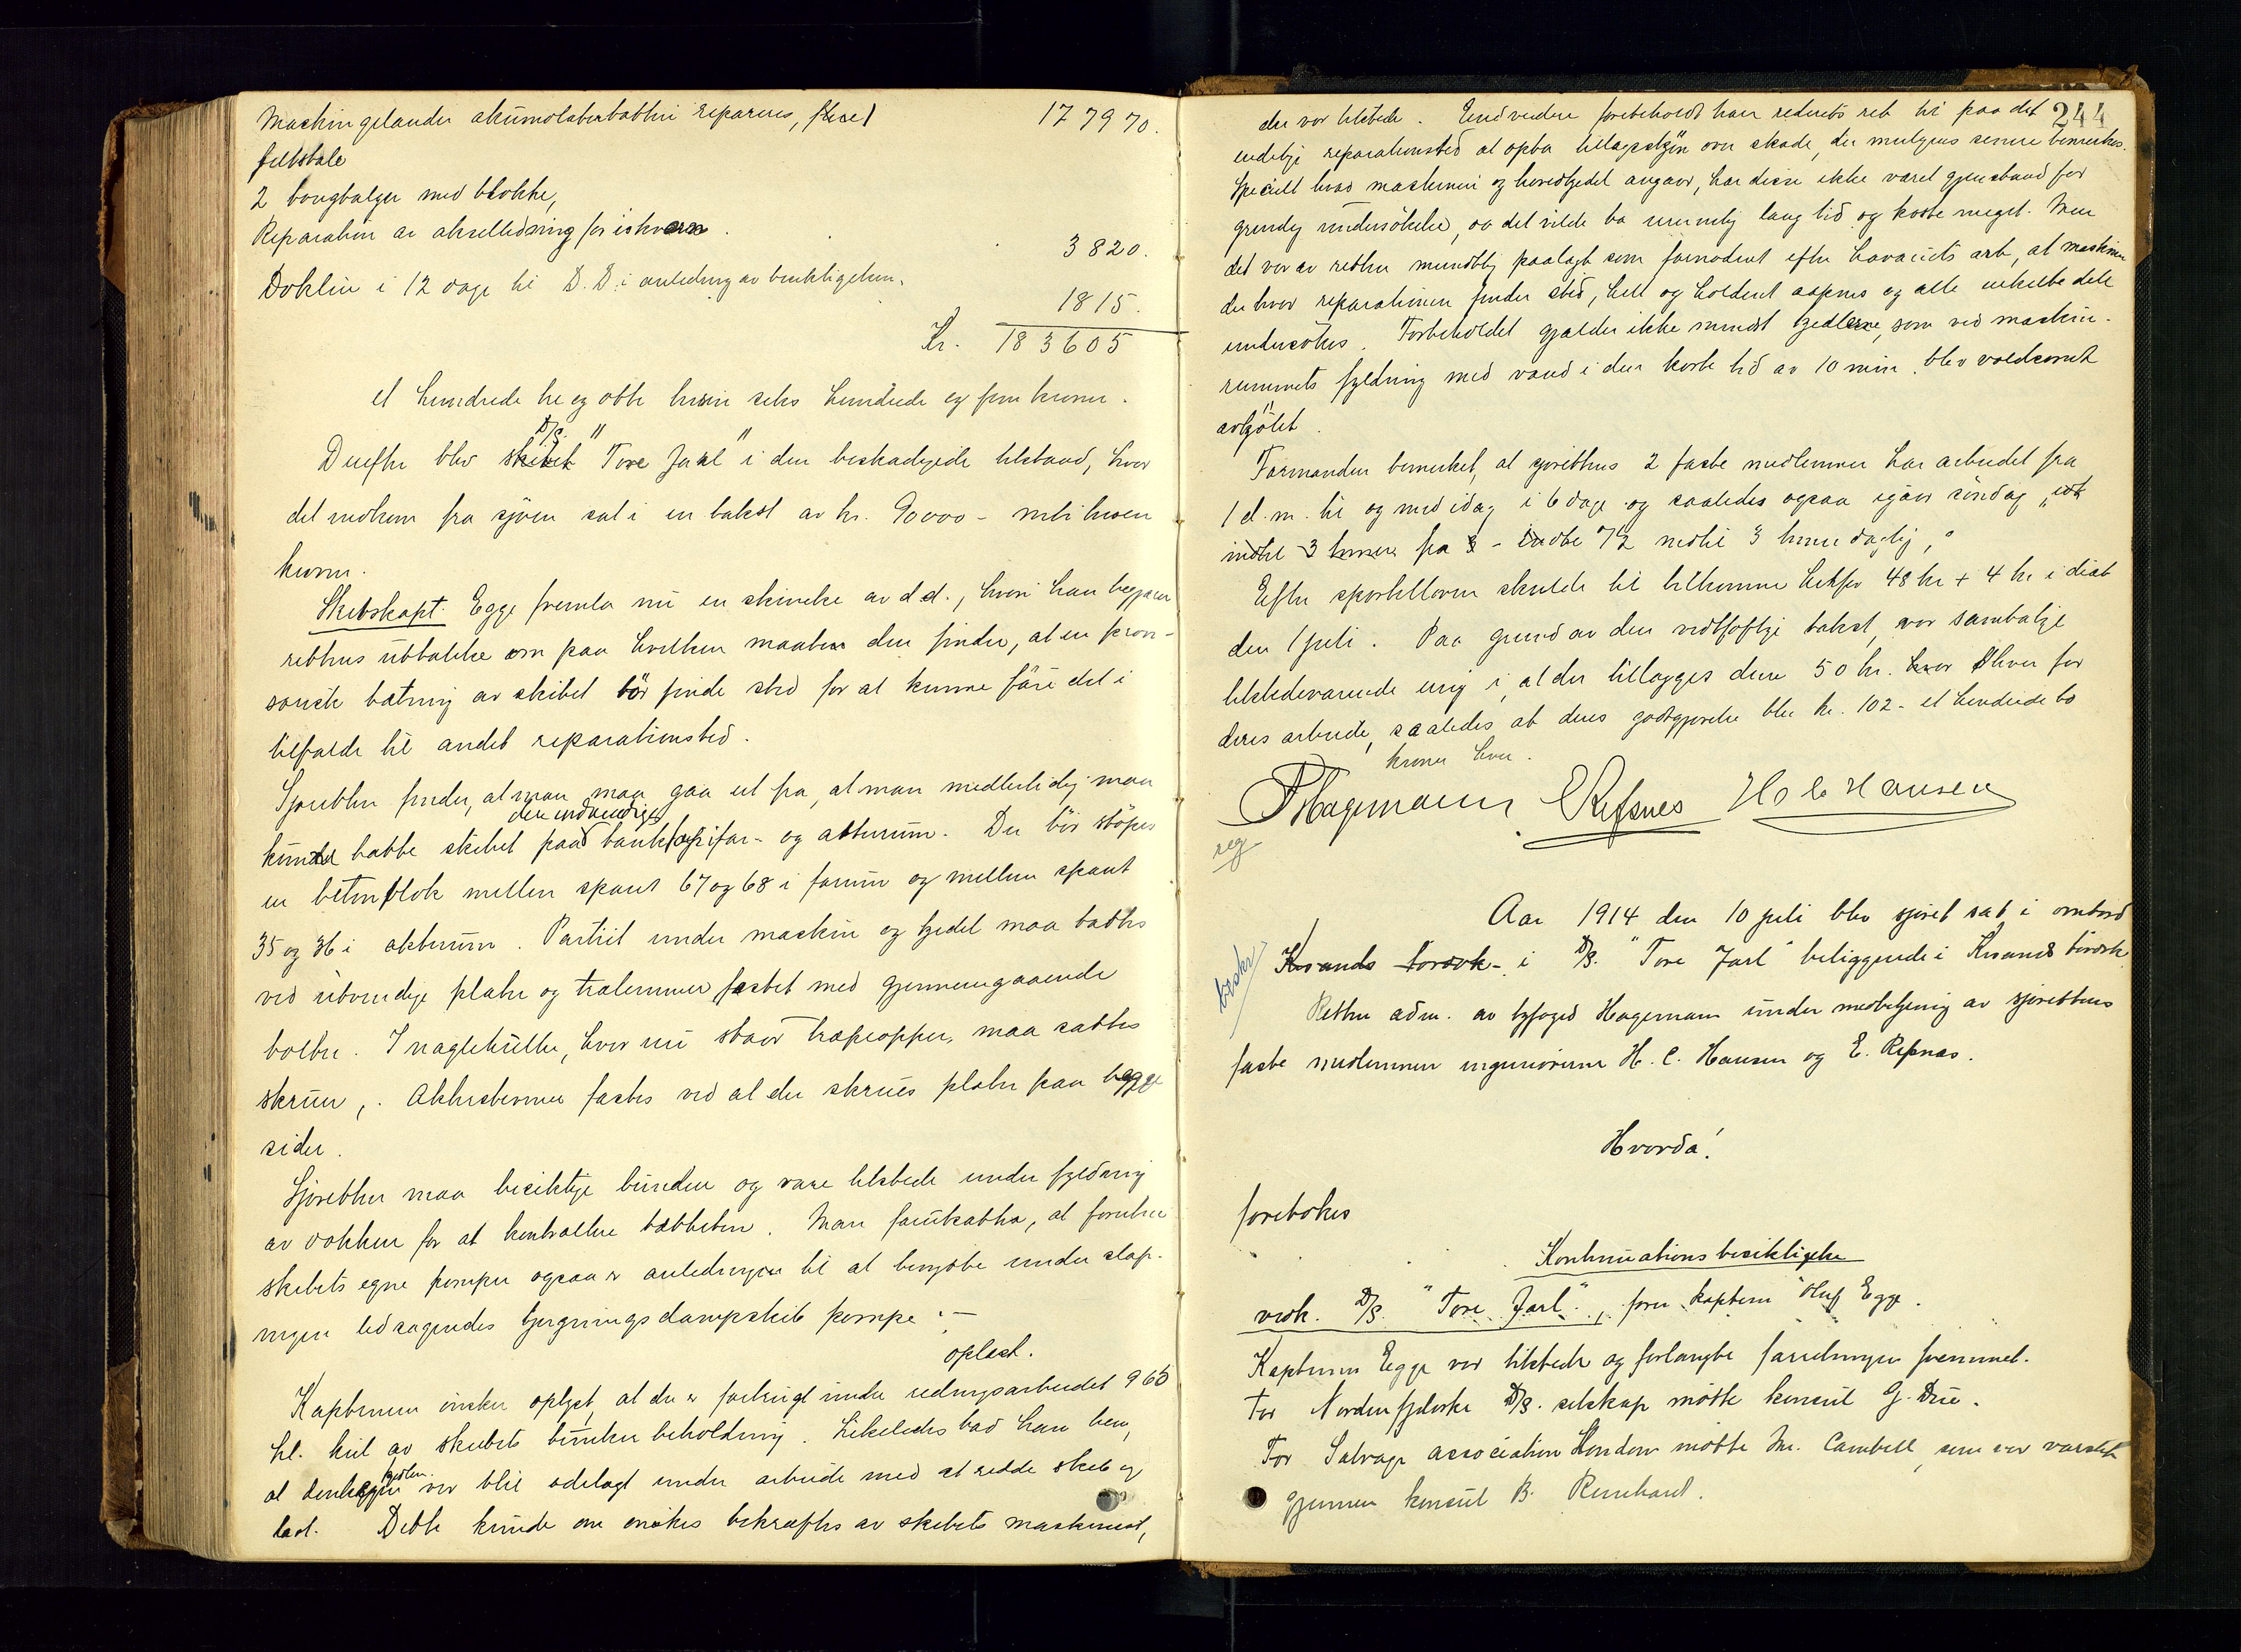 Maskingelander akumolatorbatteri repareres, 177970.
feltstole
2 bougbalger med blokke,
Reparation av akselledning for
Dokleie i 12 dage til D.D. i anledning av besiktigelsen. 3820.
1815.
Kr. 183605
et hundrede tre og otti tusen seks hundrede og fem kroner.
Derefter blev skibet D/S. "Tore Jarl" i den beskadigede tilstand, hvor
det indkom fra sjøen sat i en takst av kr. 90000 - nitti tusen
kroner.
Skibskapt. Egge fremla nu en skrivelse av d.d., hvori han begjærer
rettens uttalelse om paa hvilken maate den finder, at en provi-
sorisk tætning av skibet bør finde sted for at kunne føre det i
tilfælde til andet reparationssted.
Sjøretten finder, at man maa gaa ut fra, at man midlertidig maa
kunde tætte skibet paa den indvendige tanktop i for- og akterrum. Der bør støpes
en betonblok mellem spant 67 og 68 i forrum og mellem spant
35 og 36 i akterrum. Partiet under maskin og kjedel maa tættes
ved utvendige plater og trælemmer fæstet med gjennemgaaende
bolter. I naglehuller, hvor nu staar træpropper, maa sættes
skruer,. Akterstevnen fæstes ved at der skrues plater paa begge
sider.
Sjøretten maa besiktige bunden og være tilstede under fyldning
av dokken for at kontrollere tætheten. Man forutsætter, at foruten
skibets egne pumper ogsaa er anledningen til at benytte under slæp-
ningen ledsagendes bjergningsdampskibs pumpe. —
oplæst.
Kapteinen ønsker oplyst, at der er forbrugt under redningsarbeidet 965
hl. kul av skibets bunkerbeholdning. Likeledes bad han bem,
at kjølen var blit ødelagt under arbeide med at redde skib og
last. Dette kunde om ønskes bekræftes av skibets maskinist,
244
der var tilstede. Endvidere forebeholdt han rederiets ret til paa det
endelige reparationssted at opta tillægsskjøn over skade, der muligens senere bemerkes.
Specielt hvad maskineri og hovedkjedel angaar, har disse ikke været gjenstand for
grundig undersøkelse, da det vilde ta urimelig lang tid og koste meget. Men
det var av retten mundtlig paalagt som fornødent efter havariets art, at maskinen
der hvor reparationen finder sted, helt og holdent aapnes og alle enkelte dele
undersøkes. Forbeholdet gjælder ikke mindst kjedlerne, som ved maskin-
rummets fyldning med vand i den korte tid av 10 min. blev voldsomt
avkjølet.
Formanden bemerket, at sjørettens 2 faste medlemmer har arbeidet fra
1 d.m. til og med idag i 6 dage og saaledes ogsaa igaar søndag
indtil 3 timer fra 72 indtil 3 timer daglig,
Efter sportelloven skulde til tilkomme hver 48 kr + 4 kr i diæt
den 1 juli. Paa grund av den vidtløftige takst, var samtlige
tilstedeværende enig i, at der tillægges dem 50 kr. hver for
deres arbeide, saaledes at deres godtgjørelse blir kr. 102 - et hundrede to
kroner hver.
Hagemann ERefsnes H. C. Hansen
reg
Aar 1914 den 10 juli blev sjøret sat i ombord
Krsands tørdok - i D/S. "Tore Jarl" beliggende i Krsands tørdok
beskr
Retten adm. av byfoged Hagemann under medbetjening av sjørettens
faste medlemmer ingeniørerne H. C. Hansen og E. Refsnæs.
Hvorda!
foretokes
Kontinuationsbesiktigelse
vedk. D/S. "Tore Jarl", fører kaptein Oluf Egge.
Kapteinen Egge var tilstede og forlangte forretningen fremmet.
For Nordenfjelske D/S. selskap møtte konsul G. Due.
For Salvage association London møtte Mr. Cambell, som var varslet
gjennem konsul B. Reinhardt.